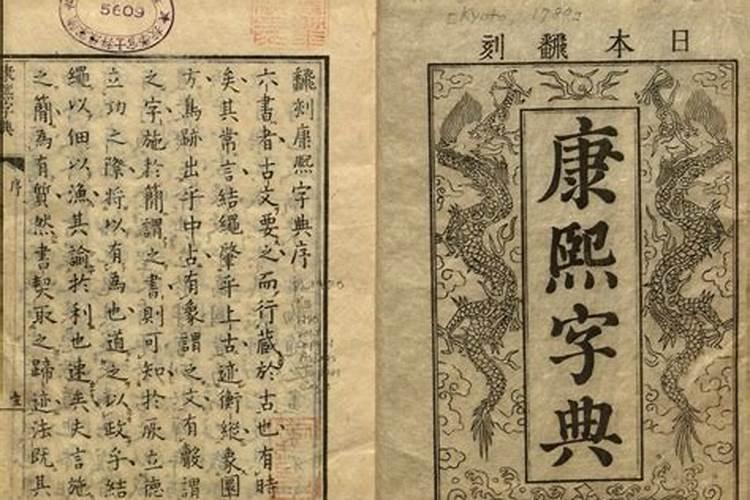 [Kyoto, 1780]
日本飜刻
康熙字典
5609
飜刻康熙字典序
六書者古文要之而行藏於古也有時
矣其常言結繩肇乎上古迹衡縱象圓
方鳥跡出乎中古有象謂之文有謂
之字施於簡謂之書則可知於厥立德
立功之際將以有為也道之以政乎結
繩以佃以漁其諭於利也速矣夫言施
之簡為有質然書契取之蹄迹法既其
康熙字典 序